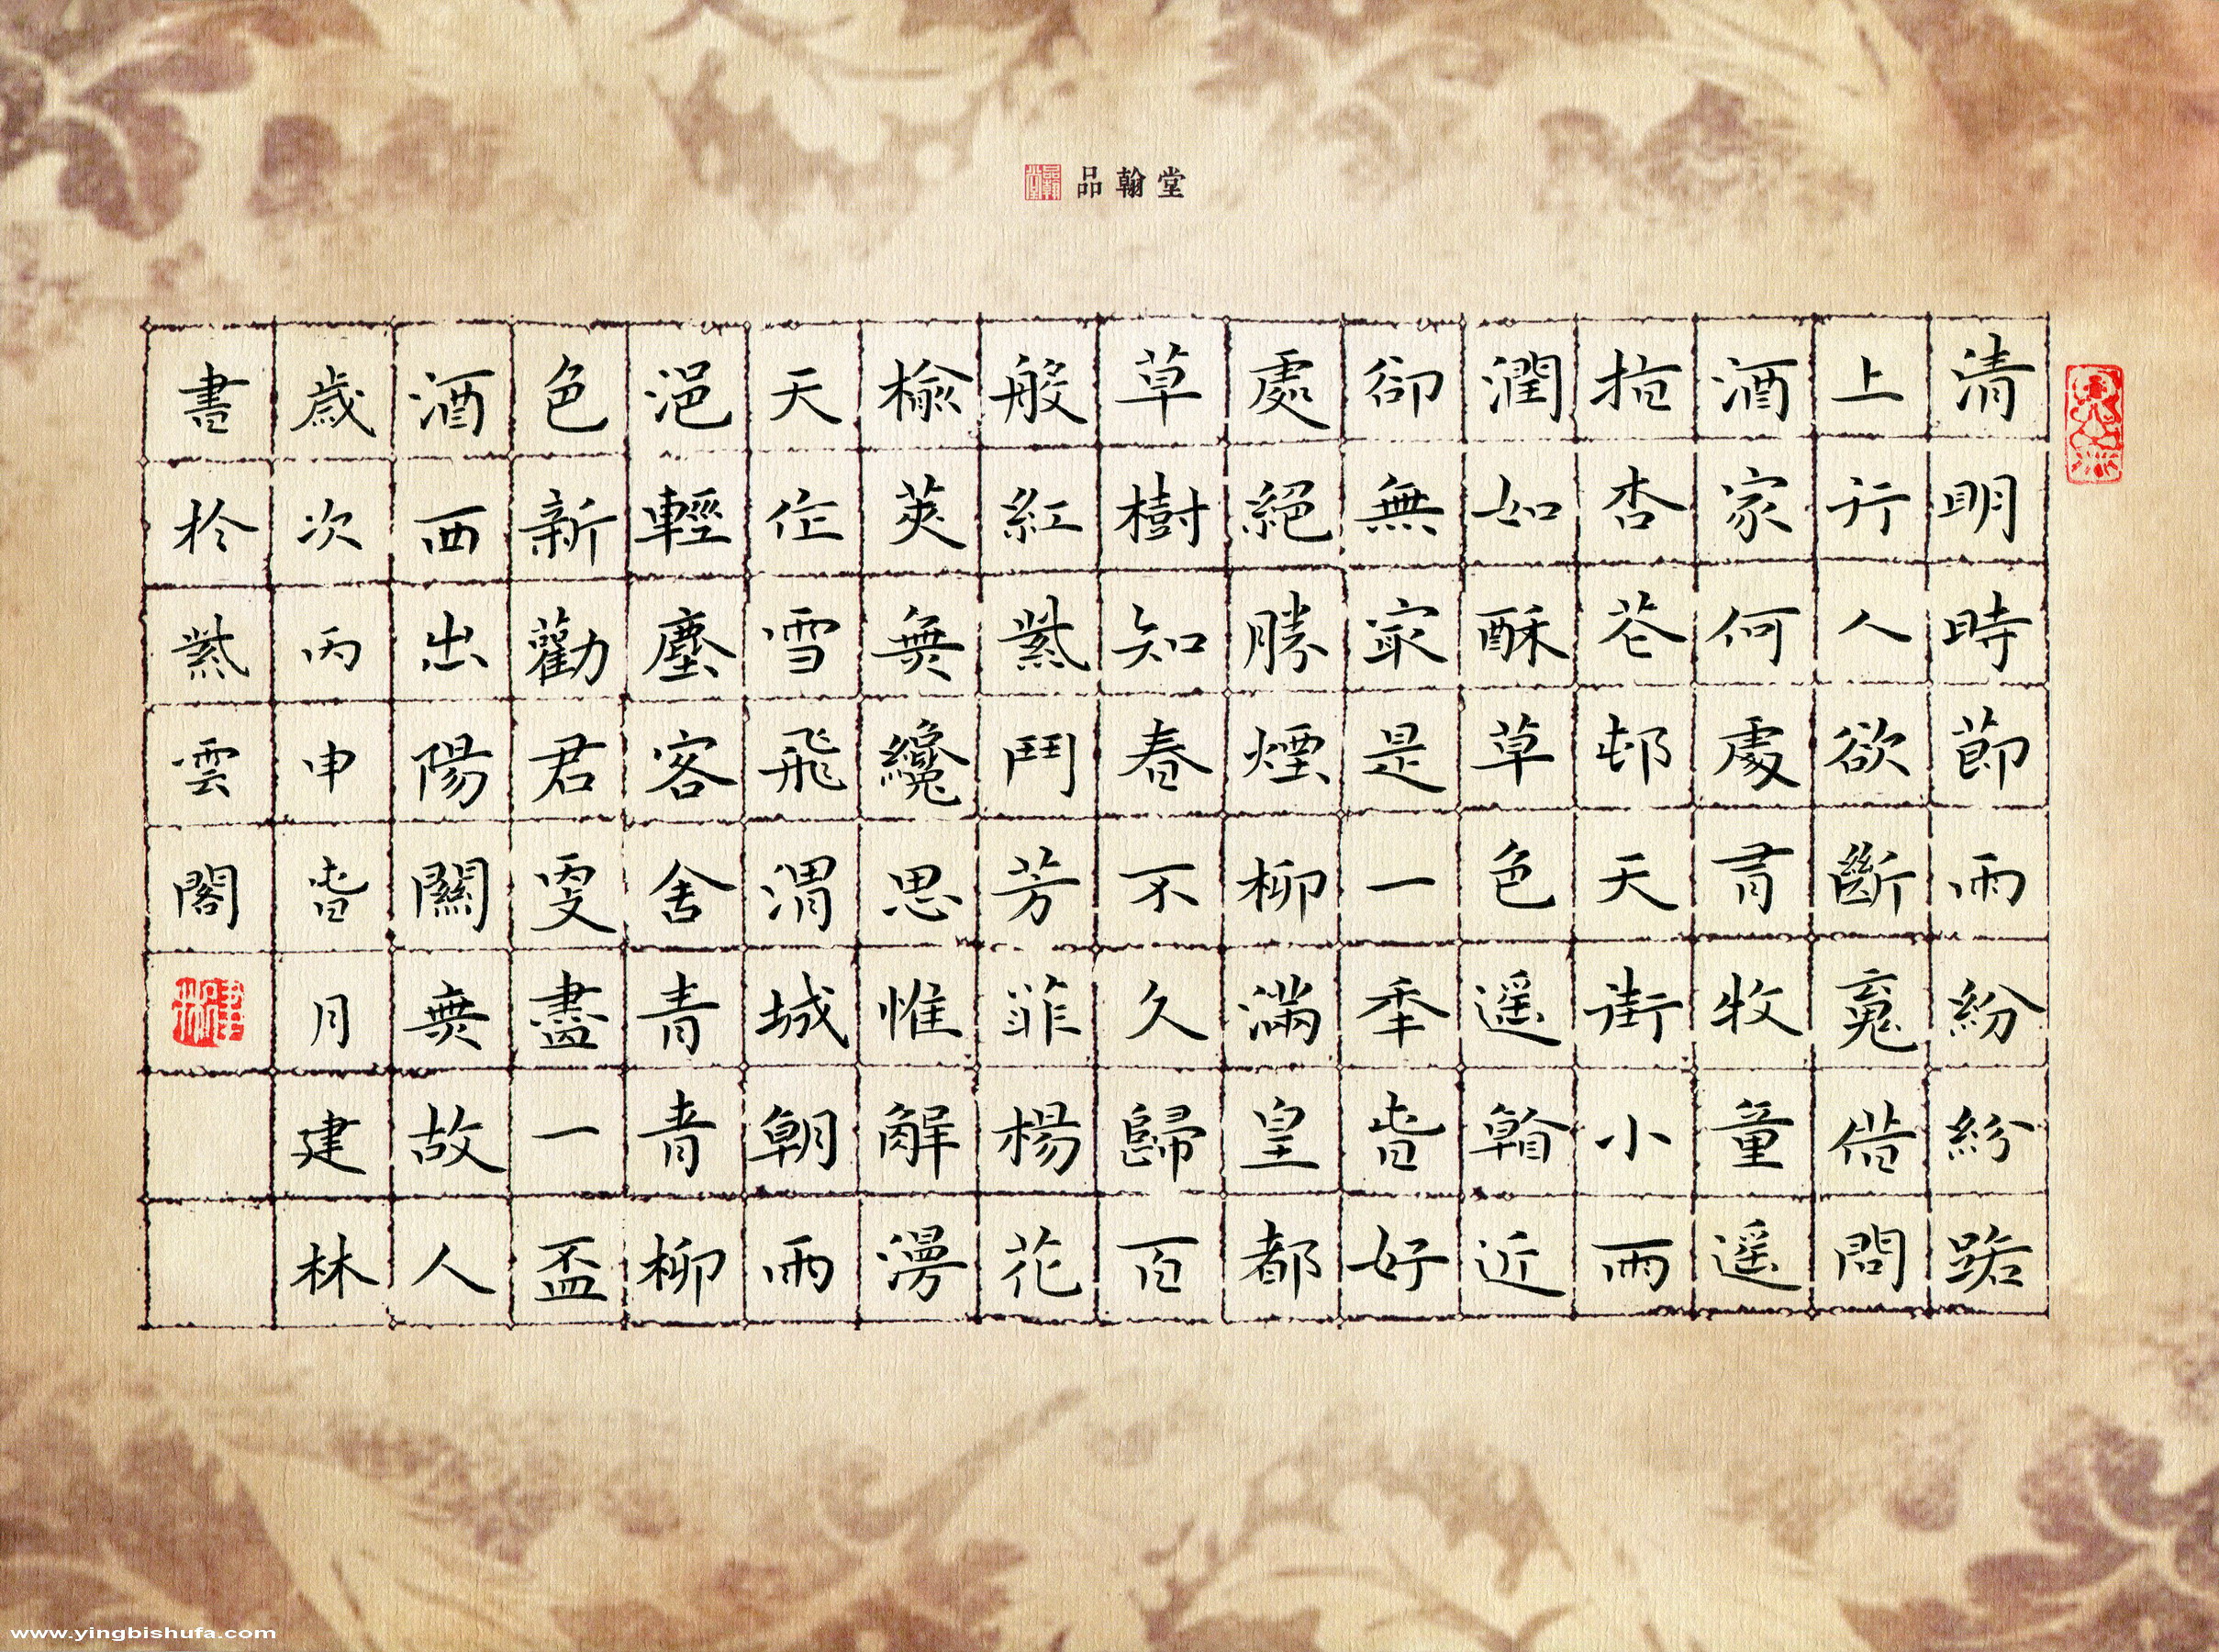 品翰堂
清明時節雨紛紛路
上行人欲斷魂借問
酒家何處有牧童遥
指杏花邨天街小雨
潤如酥草色遥看近
卻無最是一年春好
處絕勝煙柳滿皇都
草樹知春不久歸百
般紅紫鬥芳菲楊花
榆莢無纔思惟解漫
天作雪飛渭城朝雨
浥輕塵客舍青青柳
色新勸君更盡一盃
酒西出陽關無故人
歲次丙申春月建林
書於紫雲閣
www.yingbishufa.com